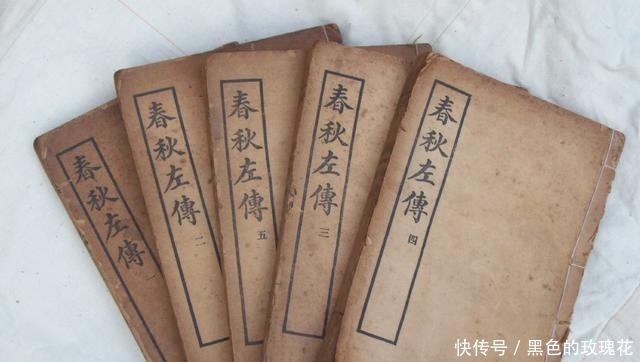 春秋左傳 一
春秋左傳 二
春秋左傳 五
春秋左傳 三
春秋左傳 四
快传号 / 黑色的玫瑰花